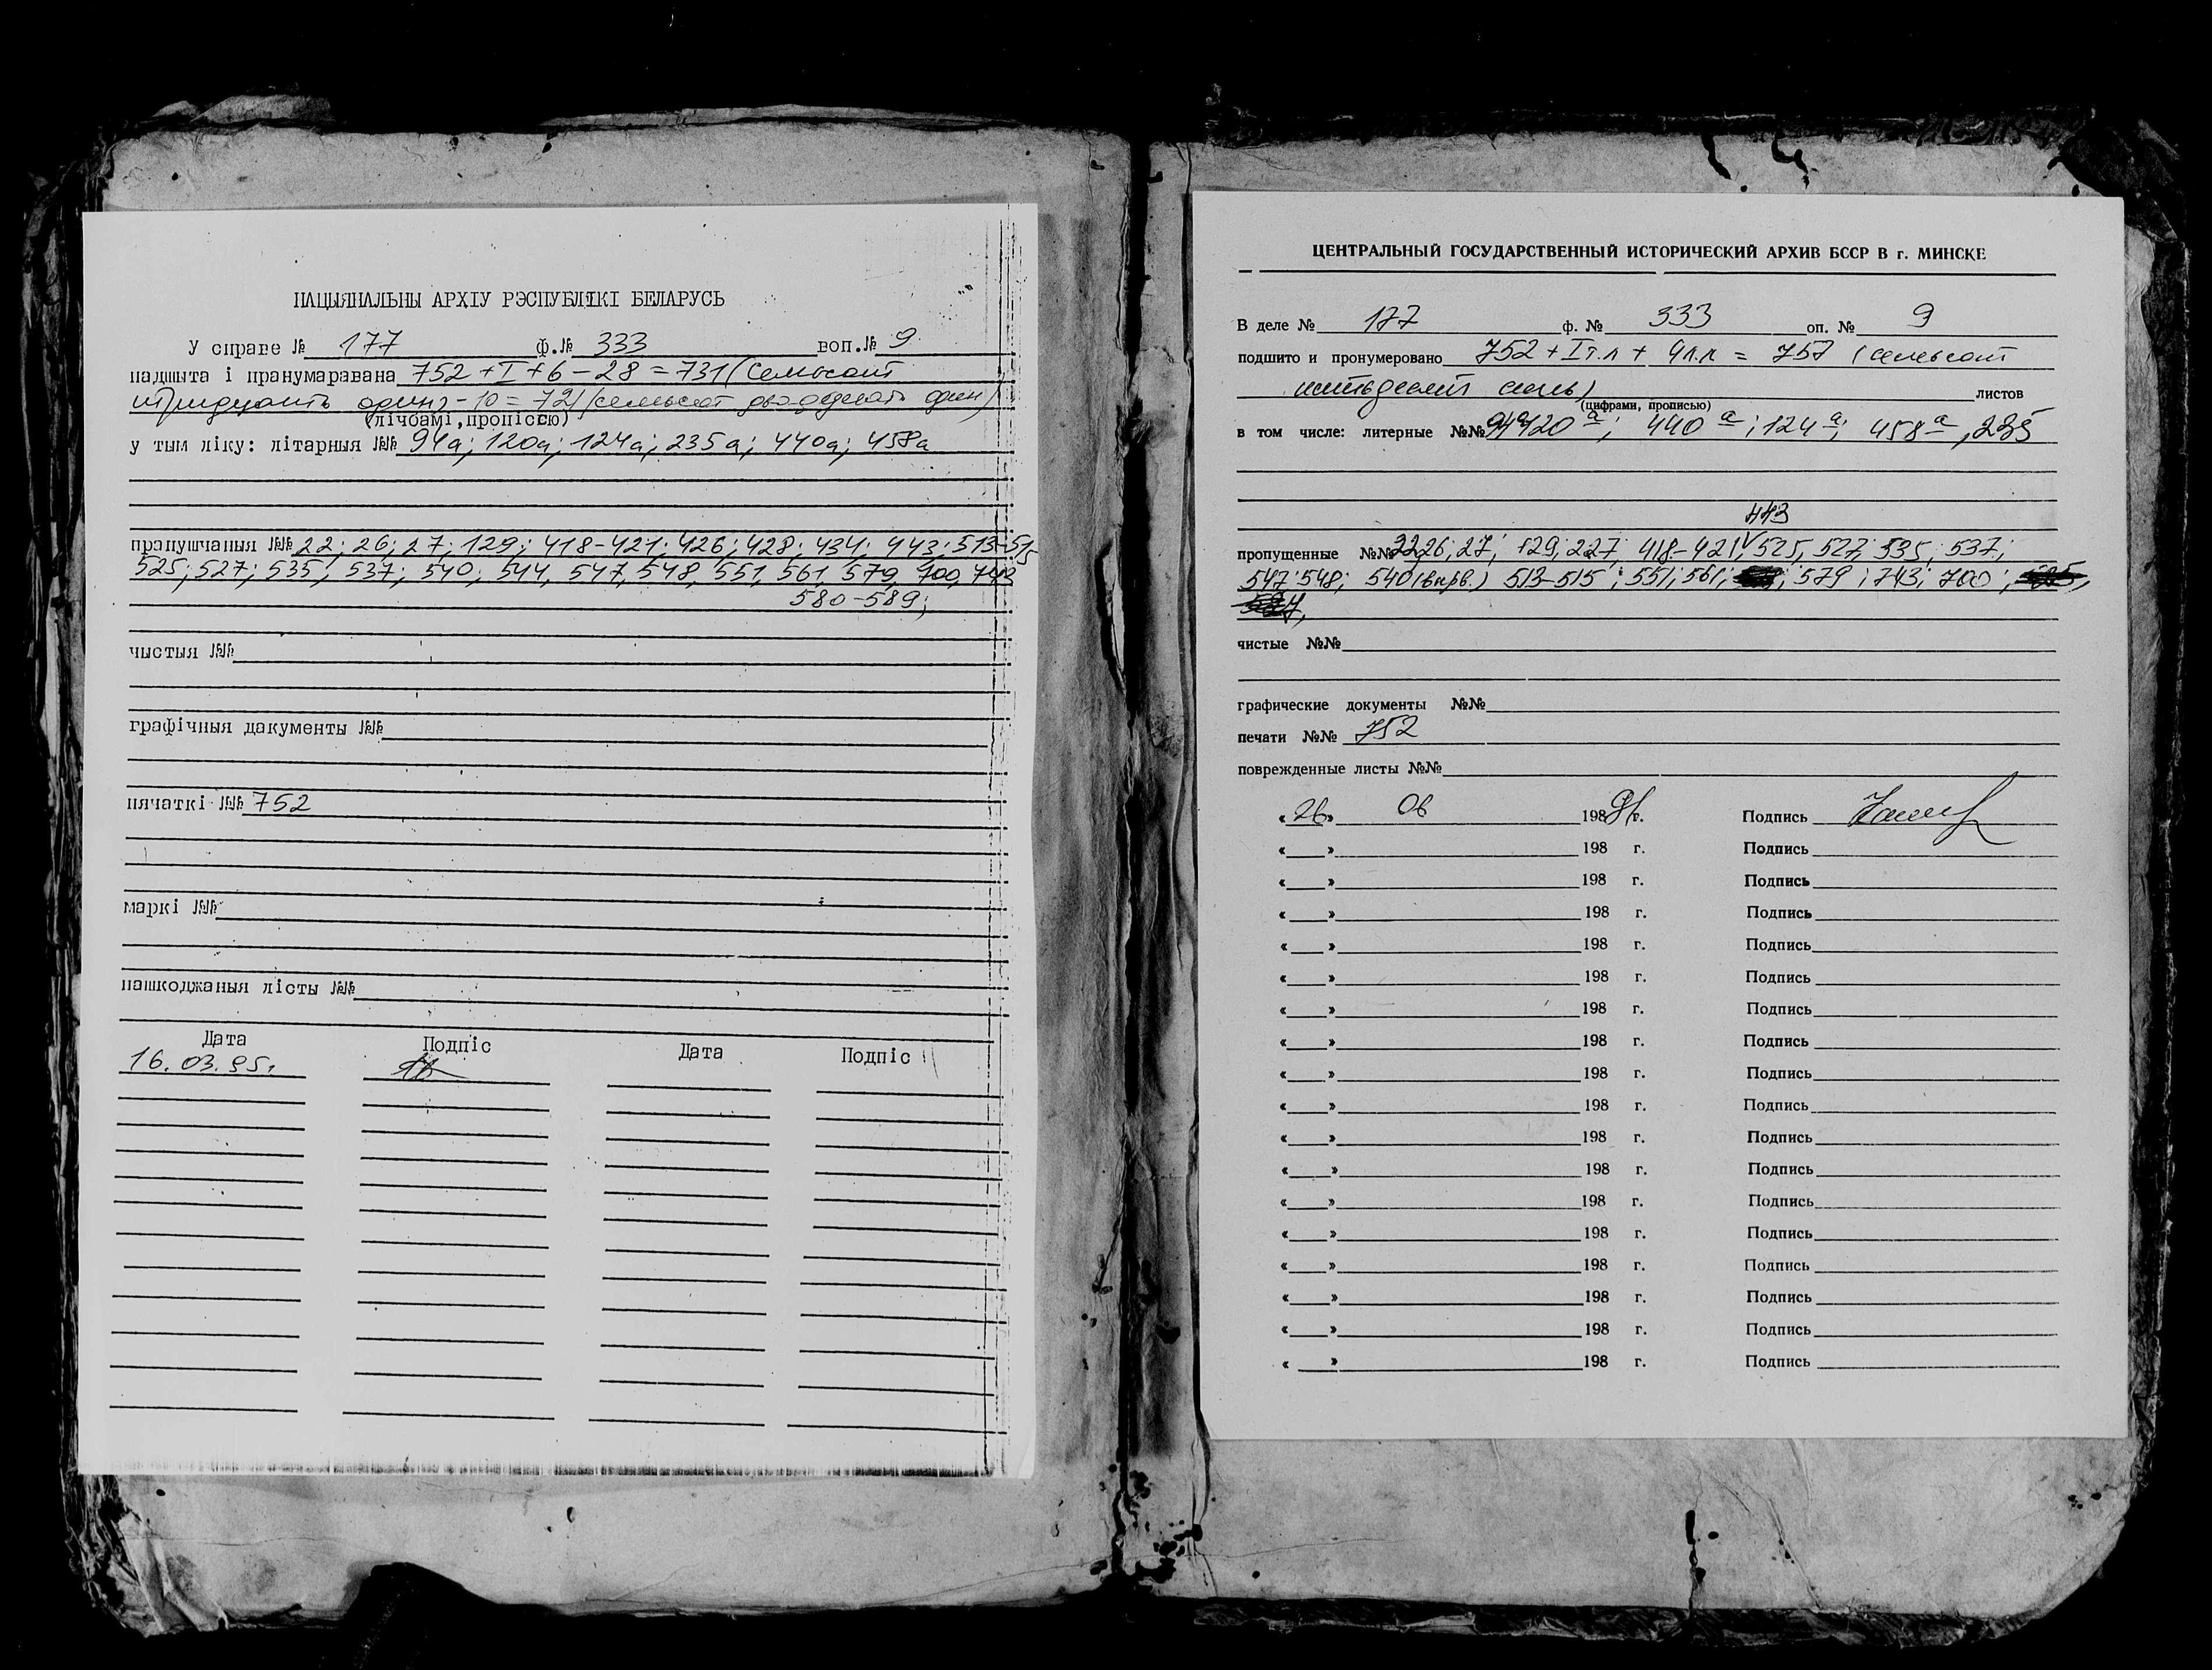 НАЦЫЯНАЛЬНЫ АРХІУ РЭСПУБЛІКІ БЕЛАРУСЬ
У справе № 177 ф.№ 333 воп.№ 9
падшыта і пранумаравана 752 + I + 6 - 28 = 731 (семьсот
тридцать один) - 10 = 721 (семьсот двадцать один)
(лічбамі, пропіссю)
у тым ліку: літарныя №№ 94а; 120а; 124а; 235а; 440а; 458а
прапушчаныя №№ 22; 26; 27; 129; 418-421; 426; 428; 434; 443; 513-515
525; 527; 535; 537; 540; 544, 547, 548, 551, 561, 579, 700, 743
580-589;
чыстыя №№
графічныя дакументы №№
пячаткі №№ 752
маркі №№
пашкоджаныя лісты №№
Дата Подпіс Дата Подпіс
16.03.95г.
ЦЕНТРАЛЬНЫЙ ГОСУДАРСТВЕННЫЙ ИСТОРИЧЕСКИЙ АРХИВ БССР В г. МИНСКЕ
В деле № 177 ф. № 333 оп. № 9
подшито и пронумеровано 752 + I т.л + 4 л.л = 757 (семьсот
пятьдесят семь) листов
(цифрами, прописью)
в том числе: литерные №№ 94а 120 а; 440 а; 124 а; 458 а, 235
443
пропущенные №№ 22 26; 27; 129; 227; 418-421 V 525, 527; 535; 537;
547; 548; 540 (випв.) 513-515; 551; 561; 579; 743; 700;
чистые №№
графические документы №№
печати №№ 752
поврежденные листы №№
« 26 » 06 198 91 г. Подпись
« » 198 г. Подпись
« » 198 г. Подпись
« » 198 г. Подпись
« » 198 г. Подпись
« » 198 г. Подпись
« » 198 г. Подпись
« » 198 г. Подпись
« » 198 г. Подпись
« » 198 г. Подпись
« » 198 г. Подпись
« » 198 г. Подпись
« » 198 г. Подпись
« » 198 г. Подпись
« » 198 г. Подпись
« » 198 г. Подпись
« » 198 г. Подпись
« » 198 г. Подпись